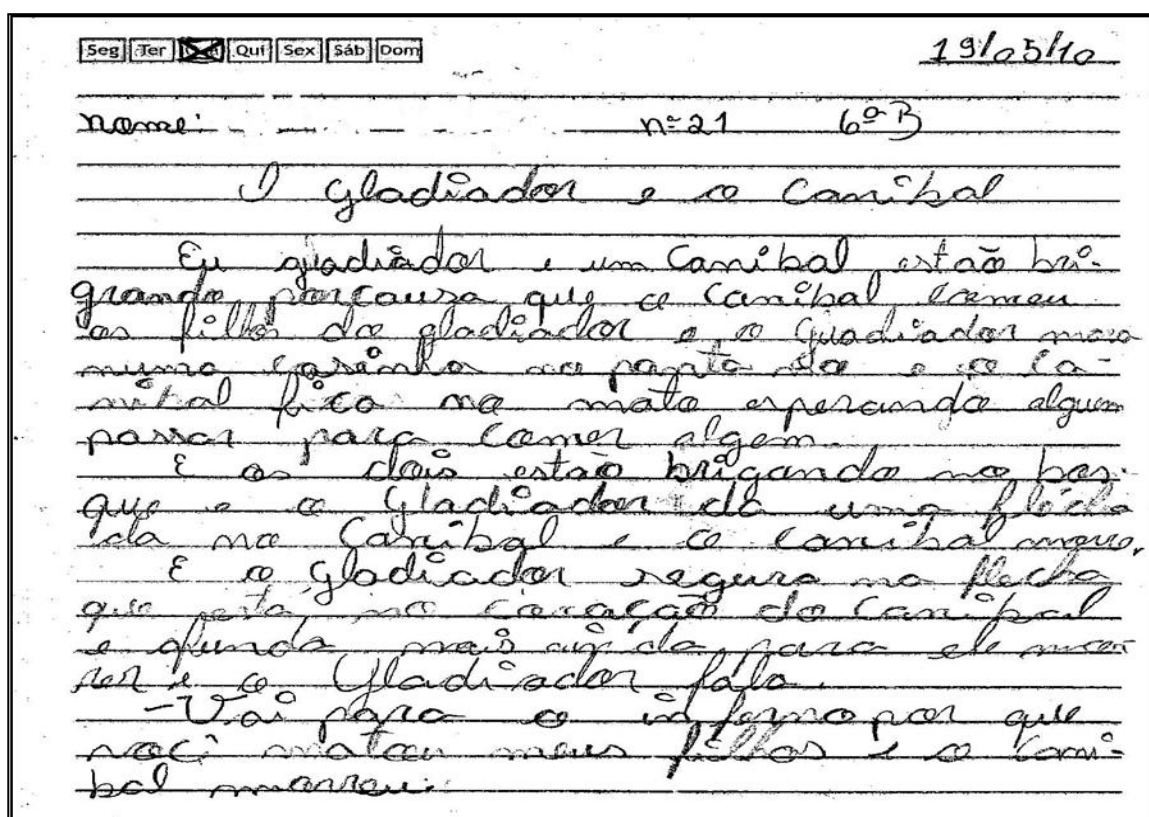 Seg Ter Qui Sex Sáb Dom 19/05/10
nome: nº 21 6ª B
O Gladiador e o Canibal
Eu gladiador e um Canibal estão bri-
grando porcausa que o Canibal comeu
os filhos do gladiador e o Guadiador mora
numa casinha na ponta da e o Ca-
nibal fica no mato esperando alguem
passar para comer algem.
E os dois estão brigando no bos-
que e o Gladiador dá uma flécha
da no Canibal e o canibal morre,
E o Gladiador segura na flecha
que esta no coração do Canibal
e afunda mais ainda para ele mor
rer e o Gladiador fala.
-Vai para o infermo por que
voci matou meus filhos e o Cani-
bal morreu.